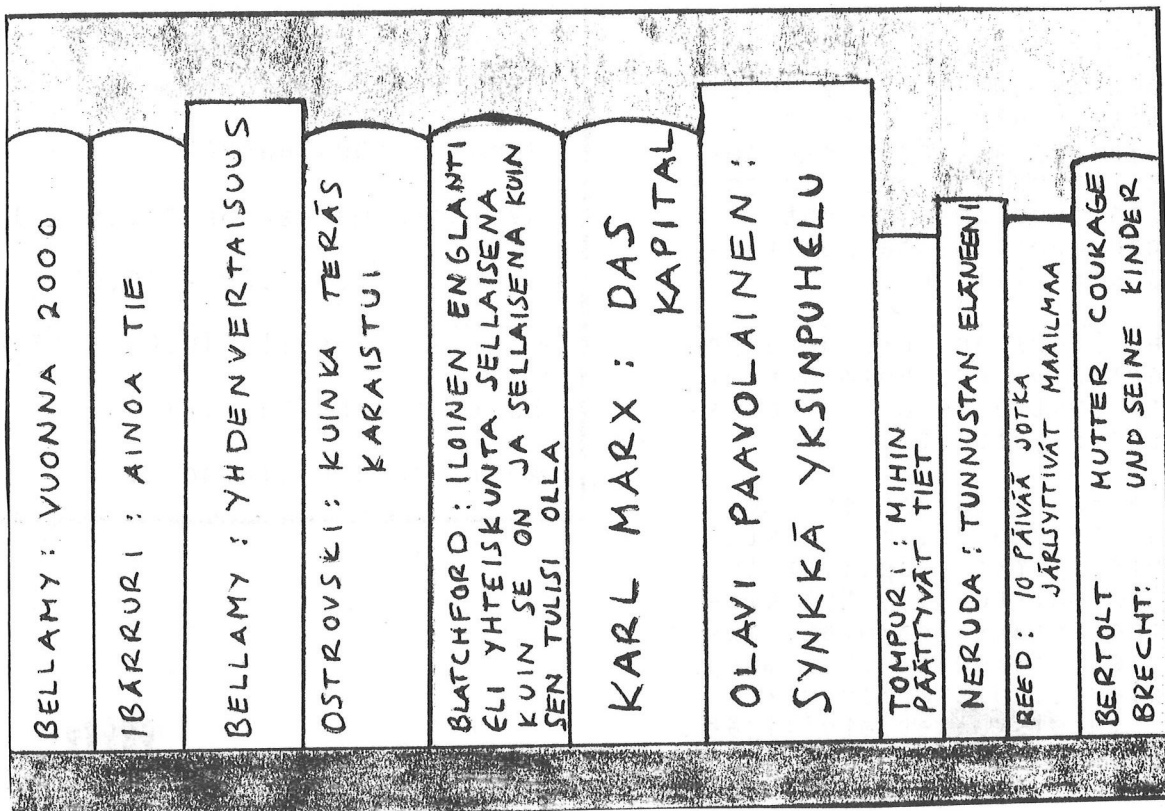 BELLAMY: VUONNA 2000
IBÁRRURI: AINOA TIE
BELLAMY: YHDENVERTAISUUS
OSTROVSKI: KUINKA TERÄS
KARAISTUI
BLATCHFORD: ILOINEN ENGLANTI
ELI YHTEISKUNTA SELLAISENA
KUIN SE ON JA SELLAISENA KUIN
SEN TULISI OLLA
KARL MARX: DAS
KAPITAL
OLAVI PAAVOLAINEN:
SYNKKÄ YKSINPUHELU
TOMPURI: MIHIN
PÄÄTTYVÄT TIET
NERUDA: TUNNUSTAN ELÄNEENI
REED: 10 PÄIVÄÄ JOTKA
JÄRISYTTIVÄT MAAILMAA
BERTOLT MUTTER COURAGE
BRECHT: UND SEINE KINDER